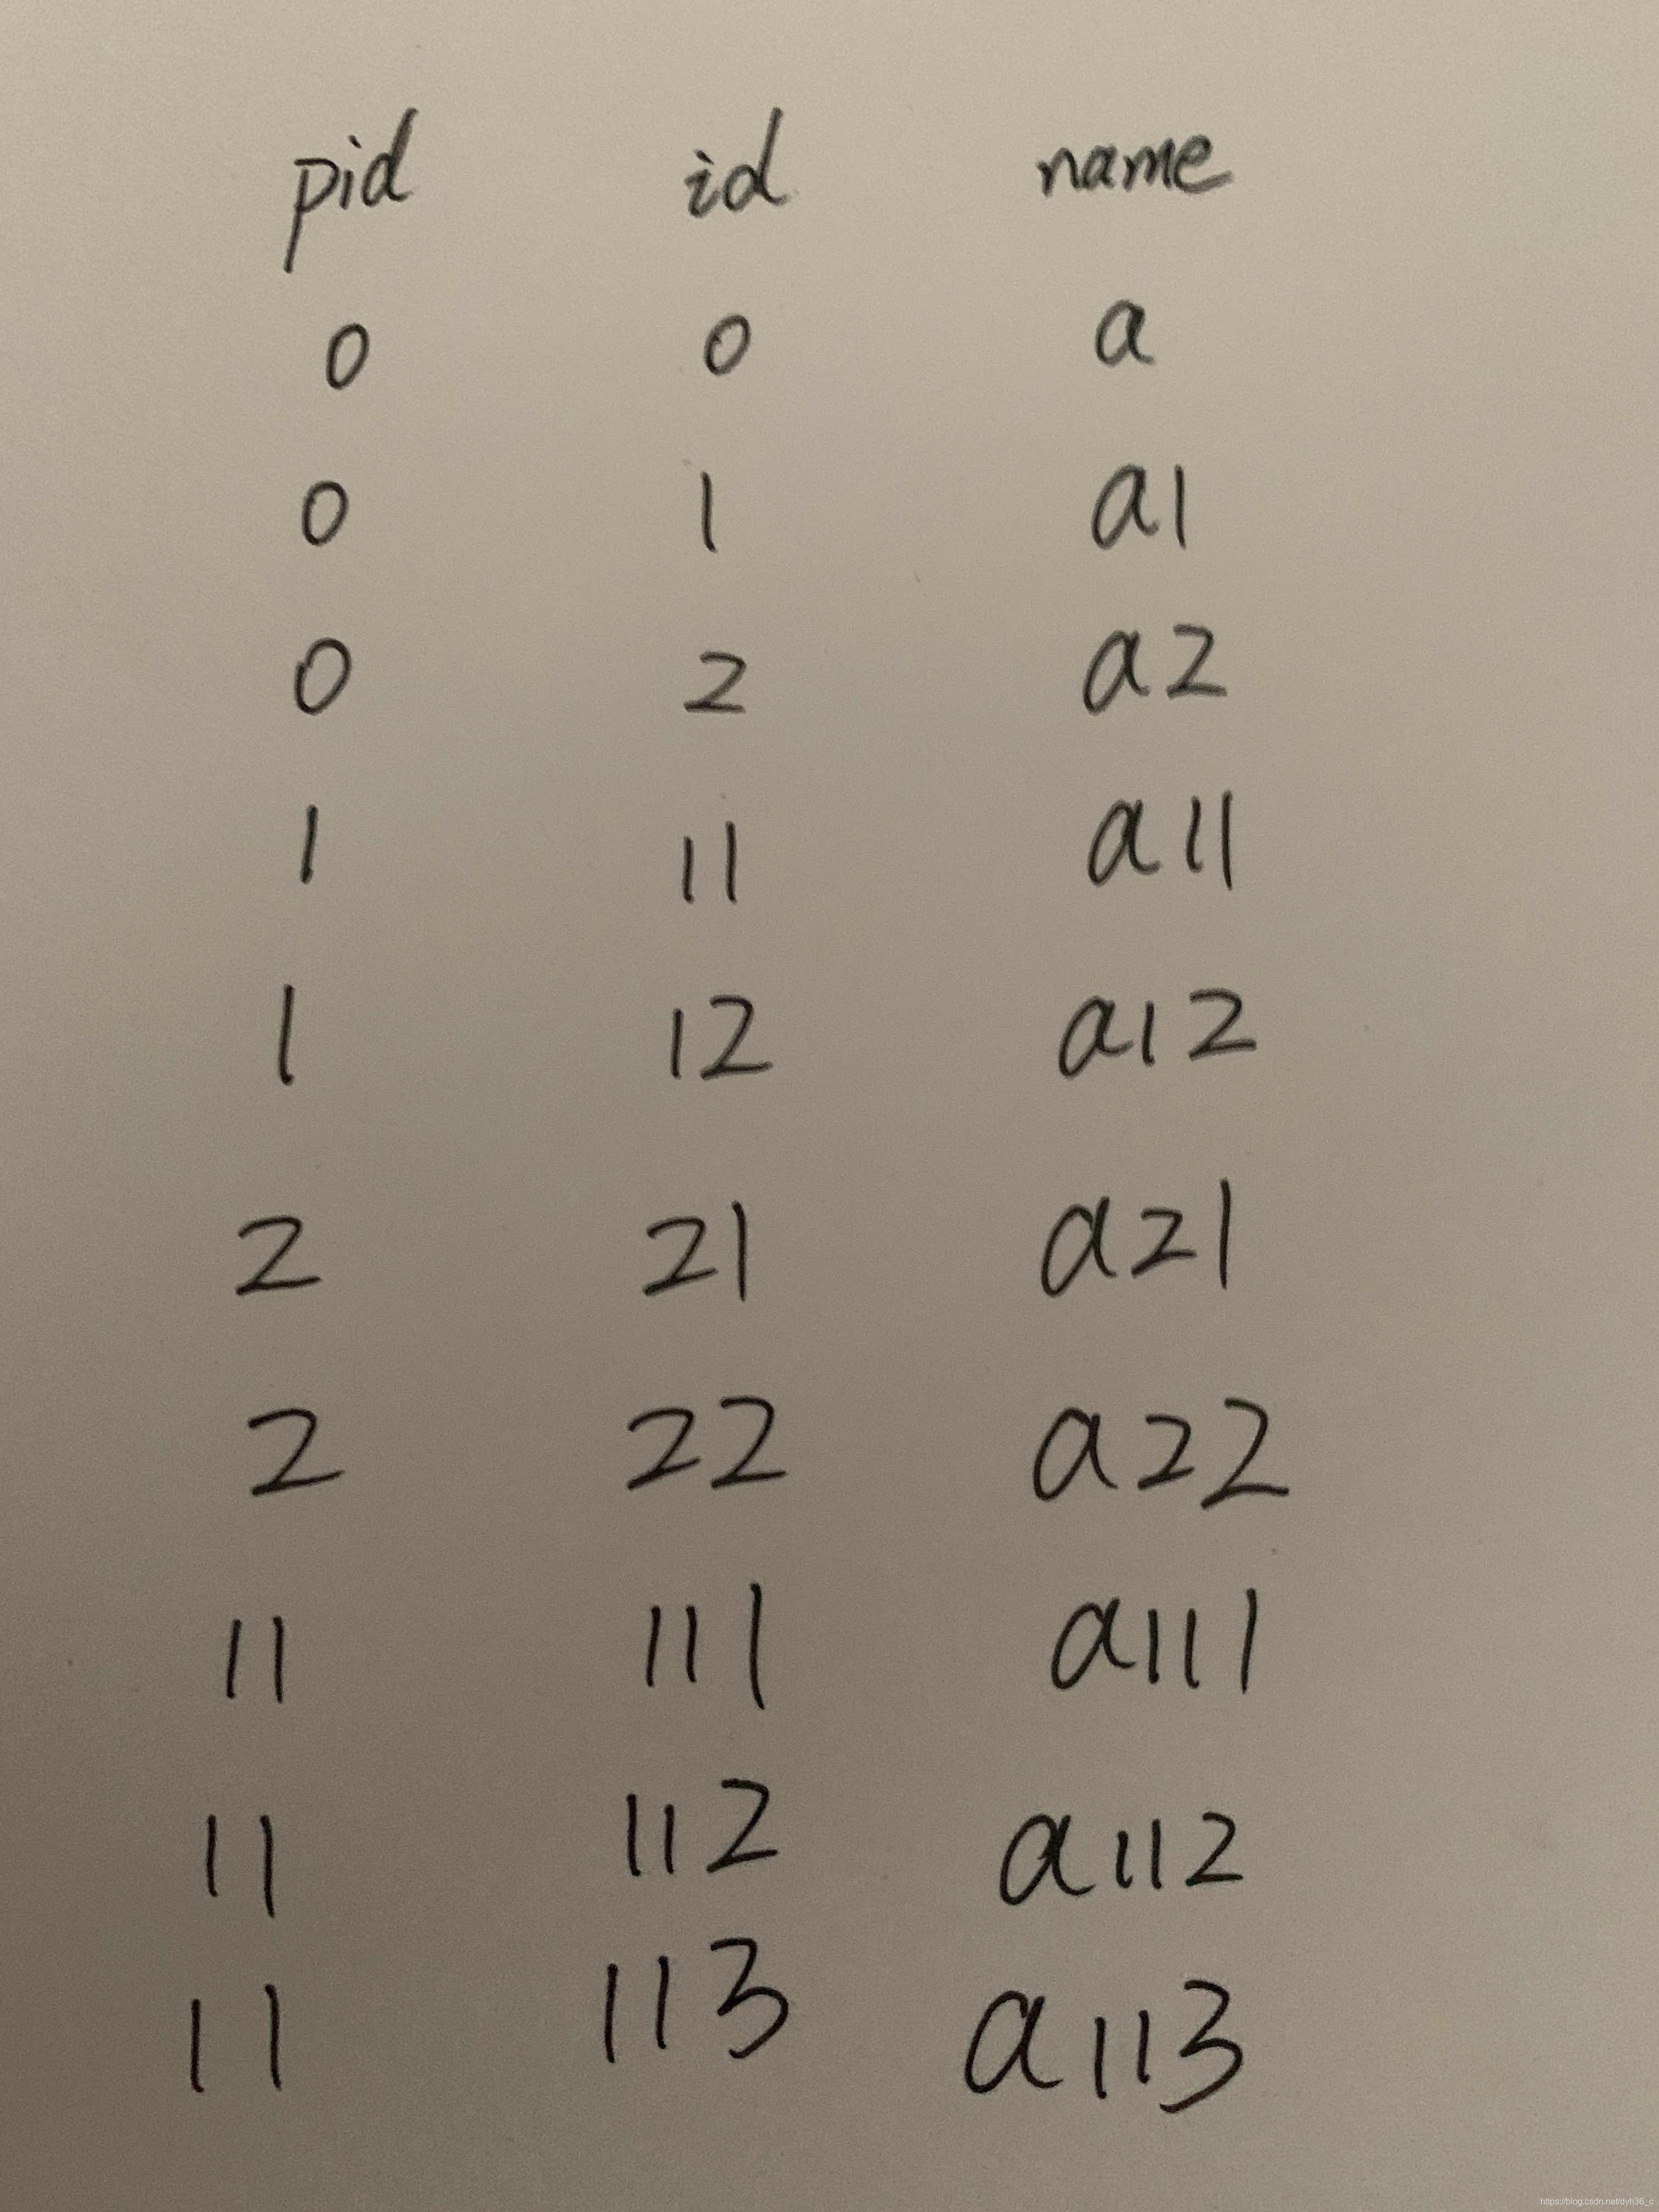 pid id name
0 0 a
0 1 a1
0 2 a2
1 11 a11
1 12 a12
2 21 a21
2 22 a22
11 111 a111
11 112 a112
11 113 a113
https://blog.csdn.net/dyh36_c